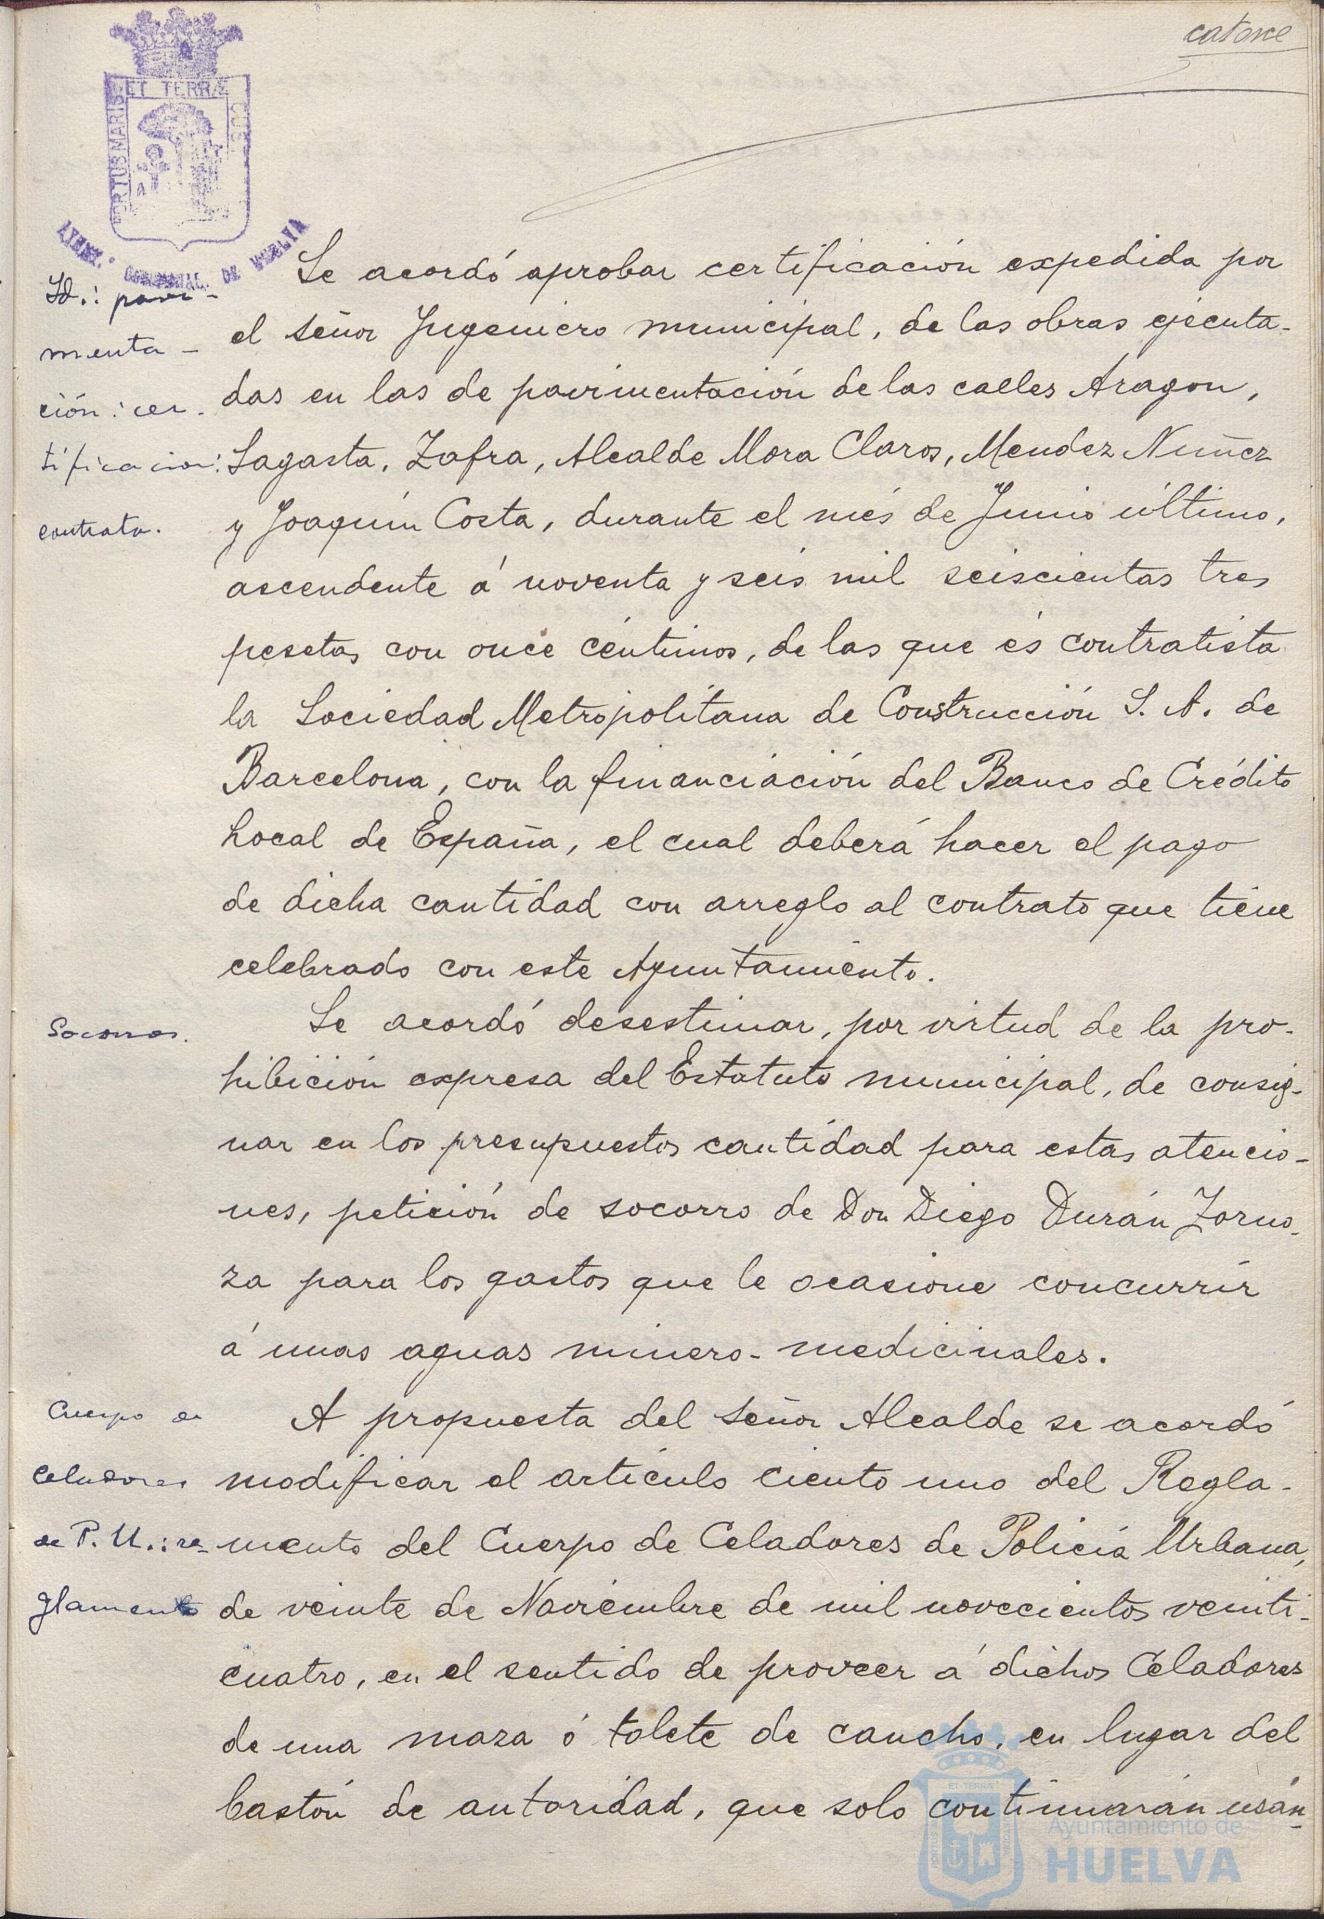 catorce
PORTUS MARIS ET TERRÆ CUSTODIA
AYUNT.º CONSTITUCIONAL DE HUELVA
Id.: pavi-
menta-
ción: cer-
tificacion:
contrata.
Se acordó aprobar certificación expedida por
el señor Ingeniero municipal, de las obras ejecuta-
das en las de pavimentación de las calles Aragon,
Sagasta, Zafra, Alcalde Mora Claros, Mendez Nuñez
y Joaquín Costa, durante el més de Junio último,
ascendente á noventa y seis mil seiscientas tres
pesetas con once céntimos, de las que és contratista
la Sociedad Metropolitana de Construcción S. A. de
Barcelona, con la financiación del Banco de Crédito
Local de España, el cual deberá hacer el pago
de dicha cantidad con arreglo al contrato que tiene
celebrado con este Ayuntamiento.
Socorros.
Se acordó desestimar, por virtud de la pro-
hibición expresa del Estatuto municipal, de consig-
nar en los presupuestos cantidad para estas atencio-
nes, petición de socorro de Don Diego Durán Zorno-
za para los gastos que le ocasione concurrir
á unas aguas minero-medicinales.
Cuerpo de
Celadores
de P. U.: re-
glamento
A propuesta del señor Alcalde se acordó
modificar el artículo ciento uno del Regla-
mento del Cuerpo de Celadores de Policía Urbana,
de veinte de Noviembre de mil novecientos veinti-
cuatro, en el sentido de proveer á dichos Celadores
de una maza ó tolete de caucho, en lugar del
bastón de autoridad, que solo continuarán usán-
Ayuntamiento de
HUELVA